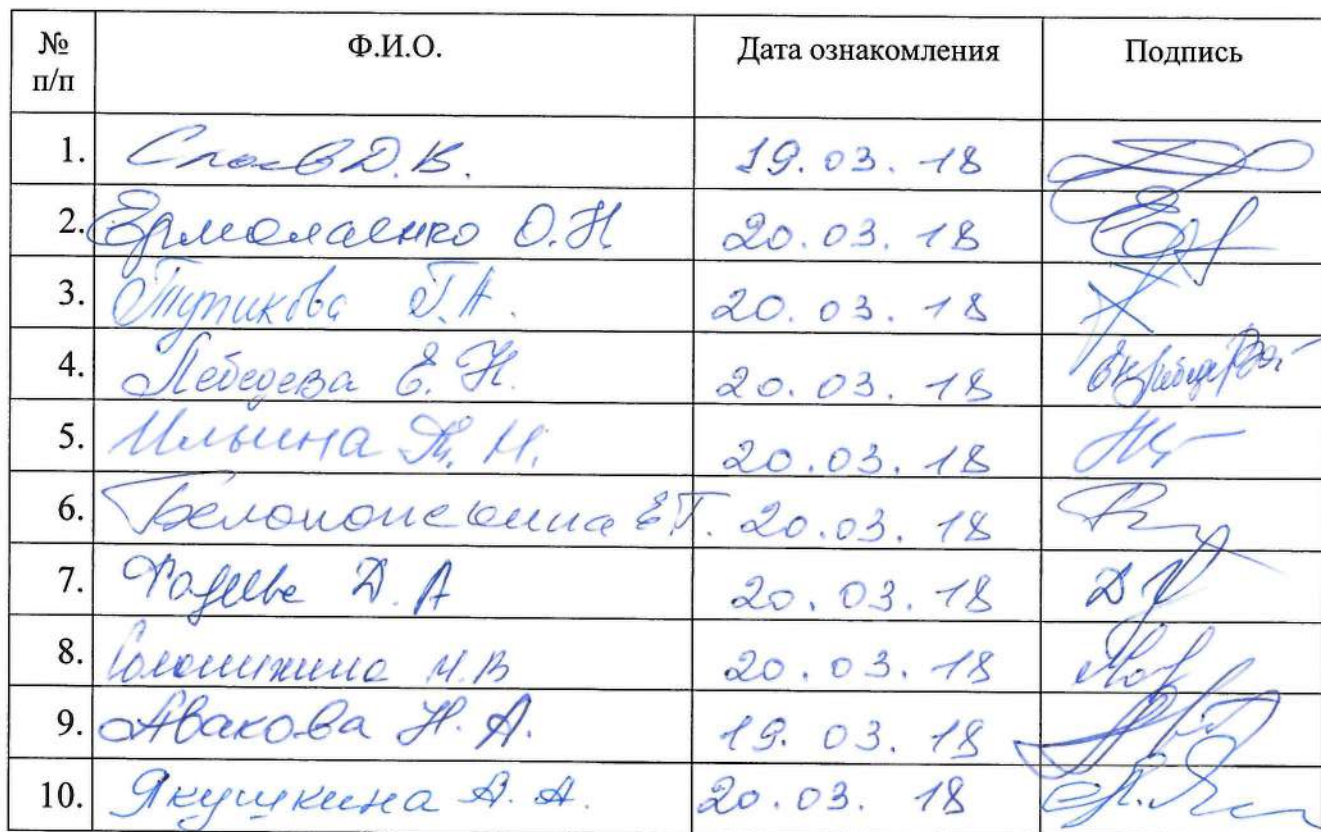 № п/п Ф.И.О. Дата ознакомления Подпись
1. Д.В. 19.03.18
2. Ермолаенко О.Н 20.03.18
3. Тупикова Т.А. 20.03.18
4. Лебедева Е.Н. 20.03.18
5. Ильина Н. 20.03.18
6. Е.Г. 20.03.18
7. Фадеева Д.А 20.03.18
8. 20.03.18
9. Авакова Н.А. 19.03.18
10. Якушкина А.А. 20.03.18